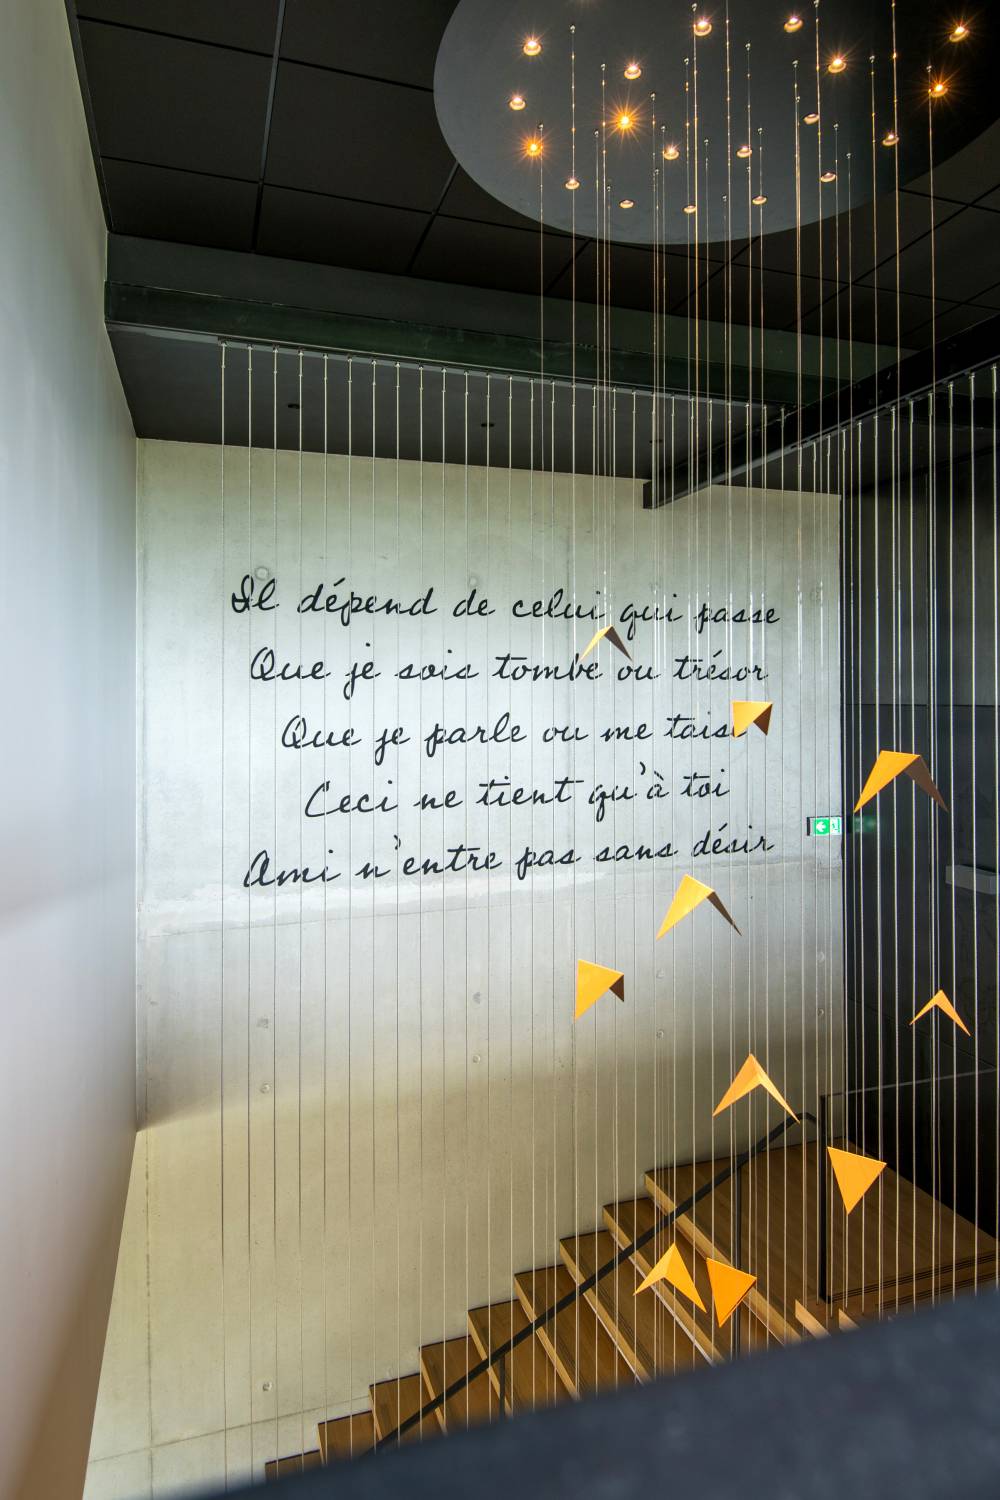 Il dépend de celui qui passe
Que je sois tombe ou trésor
Que je parle ou me taise
Ceci ne tient qu'à toi
Ami n'entre pas sans désir